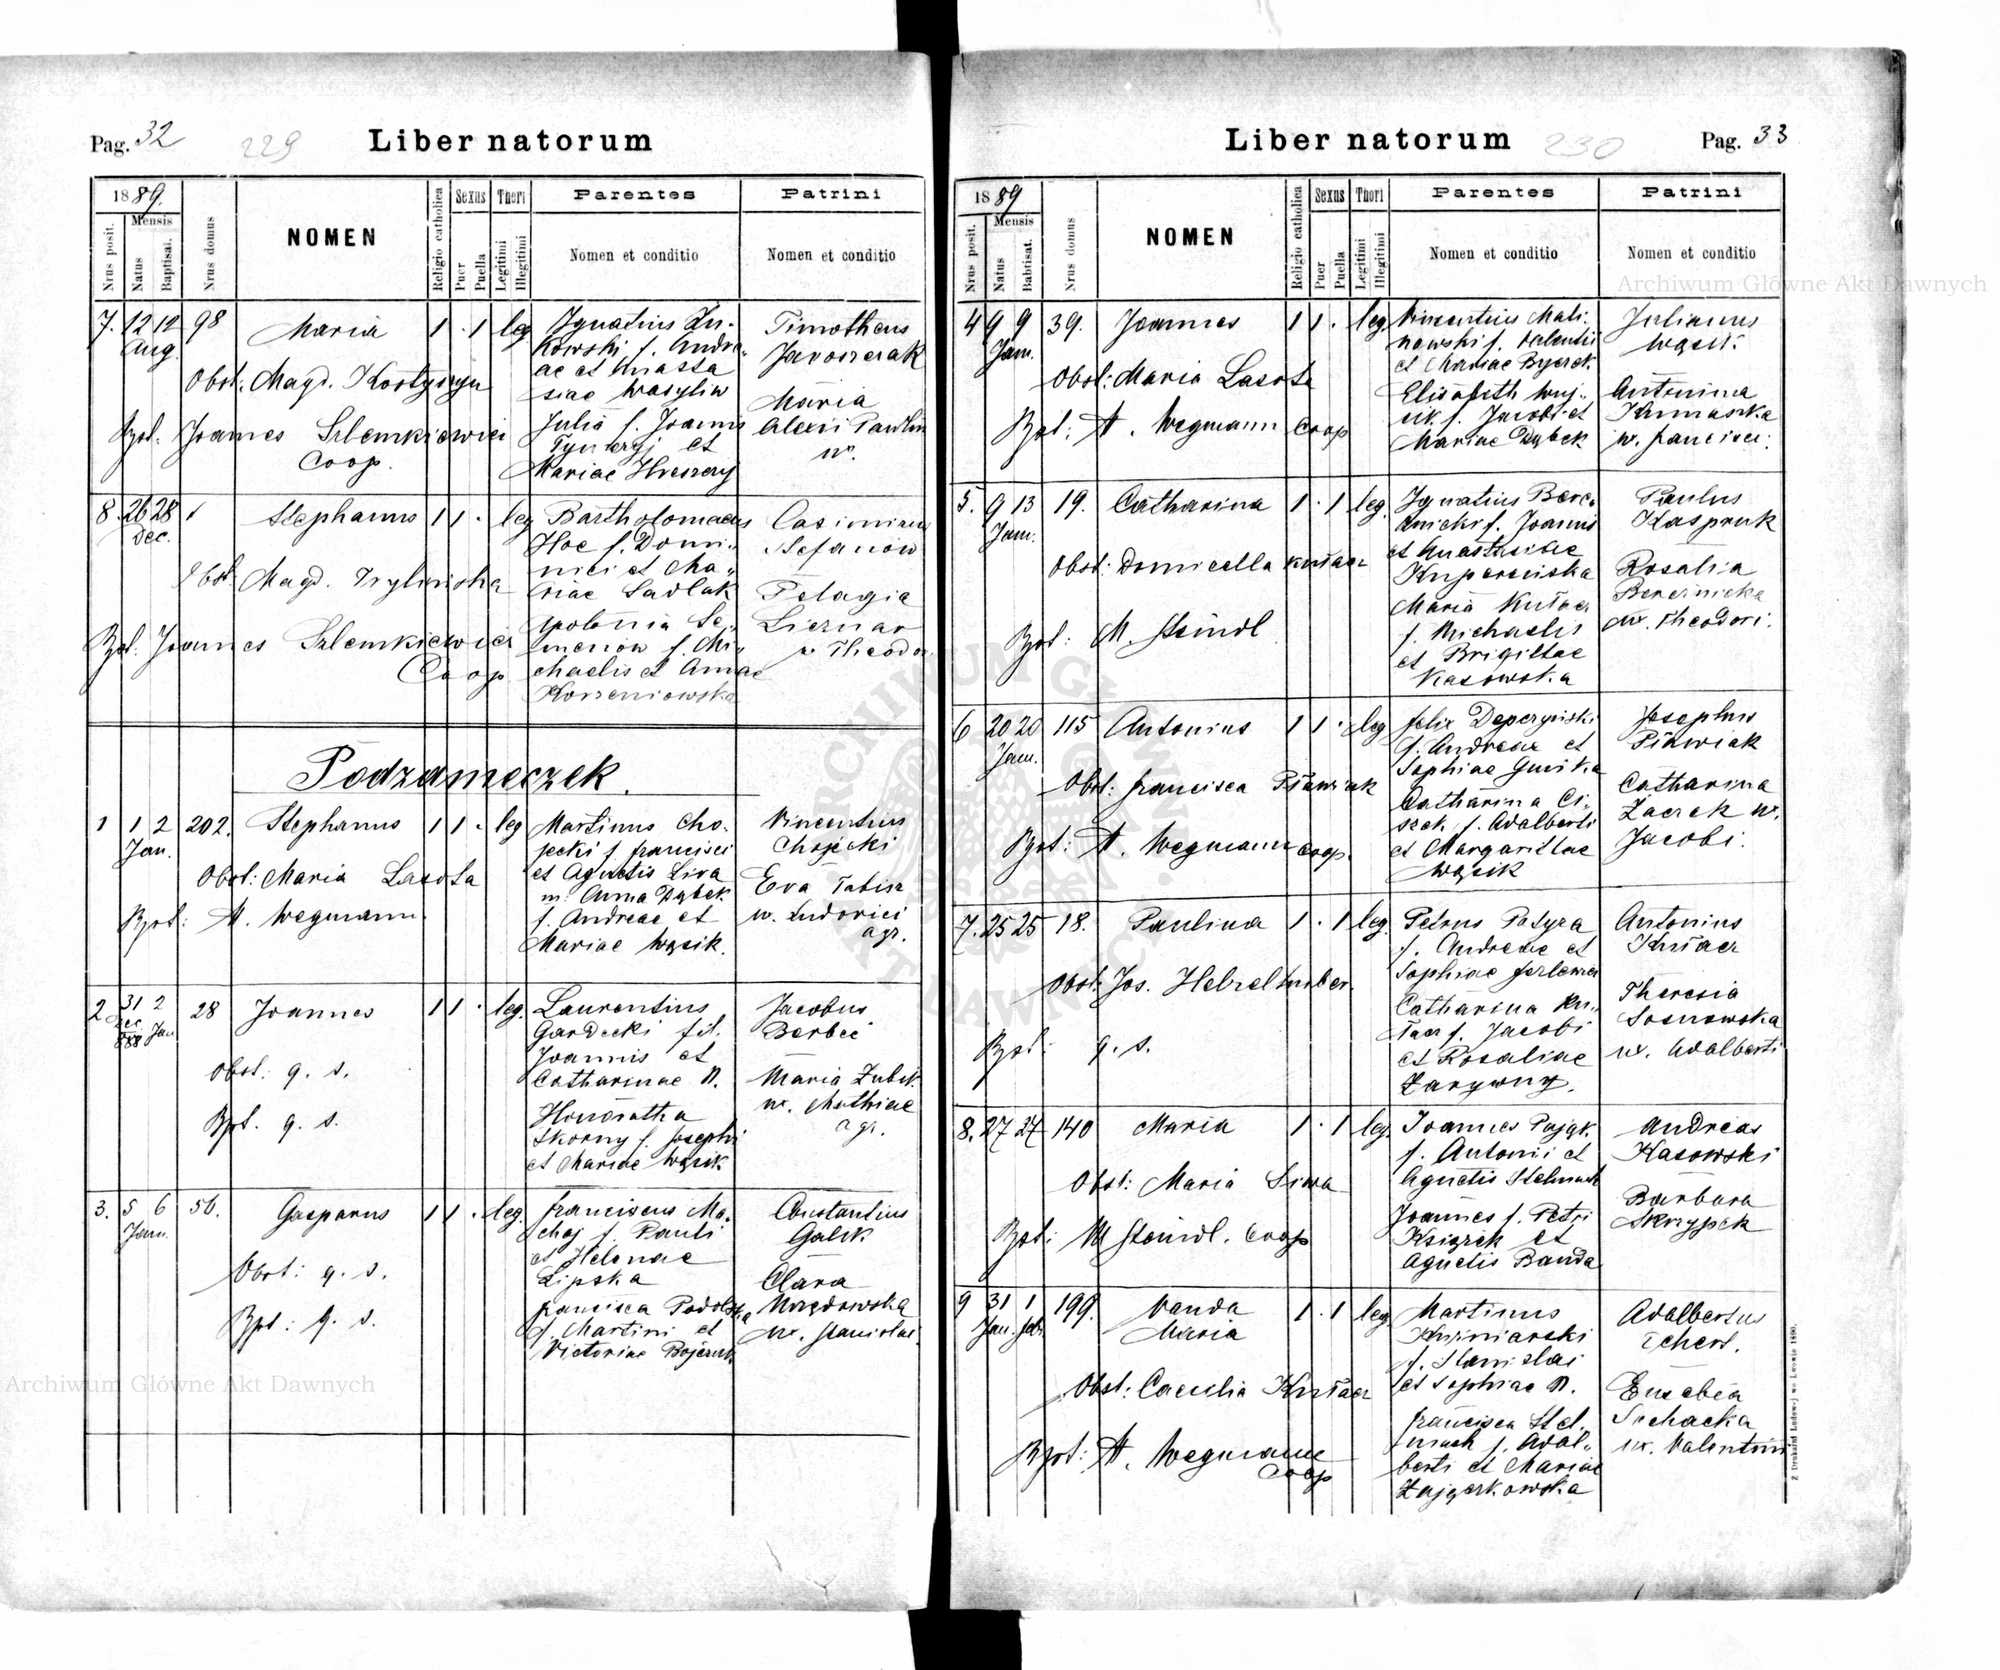 Pag. 32
229
Liber natorum
1889.
Nrus posit.
Mensis
Natus
Baptisat.
Nrus domus
NOMEN
Religio catholica
Sexus
Puer
Puella
Thori
Legitimi
Illegitimi
Parentes
Nomen et conditio
Patrini
Nomen et conditio
7. 12 12 98 Maria 1 . 1 leg
Aug.
Obst: Magd. Kostyszyn
Bpt. Joannes Szlemkiewicz
Coop.
Ignatius Zu-
kowski f. Andre-
ae et Anasta
siae Wasyliw
Julia f. Joannis
et
Mariae
Timotheus
Jaroszczak
Maria
Alexii Pawlin
8. 26 28 1 Stephanus 1 1 . leg
Dec.
Obst. Magd.
Bpt. Joannes Szlemkiewicz
Coop
Bartholomaeus
Hoc f. Domi-
nici et Ma-
riae Sadlak
Apolonia Se-
menow f. Mi-
chaelis et Annae
Korzeniowska
Casimirus
Stefanow
Pelagia
Theodor
Podzameczek.
1 1 2 202. Stephanus 1 1 . leg
Jan.
Obst: Maria Lasota
Bpt: A. Wegmann
Martinus Cho-
jecki f. Francisci
et Agnetis Siwa
m. Anna Dąbek
f. Andreae et
Mariae Wąsik.
Vincentius
Chojecki
Eva Tabisz
ux. Ludovici
agr.
2. 31 2 28 Joannes 1 1 . leg.
Dec Jan
888
Obst: q. s.
Bpt. q. s.
Laurentius
Gardecki fil.
Joannis et
Catharinae N.
Honoratha
Skorny f. Josephi
et Mariae Wąsik
Jacobus
Berbeć
Maria Zubek
ux. Mathiae
agr.
3. 5 6 56. Gasparus 1 1 . leg.
Jan.
Obst: q. s.
Bpt: q. s.
Franciscus Ma-
chaj f. Pauli
et Helenae
Lipska
Francisca Podolska
f. Martini et
Victoriae
Constantius
Galik
Clara
ux. Stanislai
Pag. 33
230
Liber natorum
1889
Nrus posit.
Mensis
Natus
Babtisat.
Nrus domus
NOMEN
Religio catholica
Sexus
Puer
Puella
Thori
Legitimi
Illegitimi
Parentes
Nomen et conditio
Patrini
Nomen et conditio
4 9 9 39. Joannes 1 1 . leg.
Jan.
Obst: Maria Lasota
Bpt: A. Wegmann Coop
Vincentius Mali-
nowski f. Valentii
et Mariae
Elisabeth Wój-
cik f. Jacobi et
Mariae Dąbek
Julianus
Wąsik.
Antonina
ux. Francisci.
5. 9 13 19. Catharina 1 . 1 leg.
Jan.
Obst: Domicella Kutacz
Bpt: M. Steindl
Ignatius Bere-
źnicki f. Joannis
et Anastasiae
Maria Kutacz
f. Michaelis
et Brigittae
Kasowska
Paulus
Kaspruk
Rosalia
Bereźnicka
ux. Theodori.
6 20 20 115 Antonius 1 1 . leg
Jan.
Obst: Francisca
Bpt: A. Wegmann Coop.
Felix Depczyński
f. Andreae et
Sophiae
Catharina Ci-
szek f. Adalberti
et Margarittae
Wąsik
Josephus
Catharina
Zaczek ux.
Jacobi.
7. 25 25 18. Paulina 1 . 1 leg.
Obst: Jos.
Bpt: q. s.
Petrus Potyra
f. Andreae et
Sophiae
Catharina Ku-
tacz f. Jacobi
et Rosaliae
Zarywny.
Antonius
Kutacz
Theresia
Sosnowska
ux. Adalberti
8. 27 27 140 Maria 1 . 1 leg.
Obst: Maria Siwa
Bpt: M. Steindl. Coop
Joannes Pająk
f. Antonii et
Agnetis Stelmach
Joannes f. Petri
Książek et
Agnetis Banda
Andreas
Kasowski
Barbara
Skrzypek
9 31 1 199. Vanda 1 . 1 leg.
Jan. Feb. Maria
Obst: Caecilia Kutacz
Bpt: A. Wegmann
Coop
Martinus
Kuźniarski
f. Stanislai
et Sophiae N.
Francisca Stel-
mach f. Adal-
berti et Mariae
Zajączkowska
Adalbertus
Eusebia
Suchacka
ux. Valentini
Z Drukarni Ludowej we Lwowie 1890.
Archiwum Główne Akt Dawnych
Archiwum Główne Akt Dawnych
ARCHIWUM GŁÓWNE AKT DAWNYCH